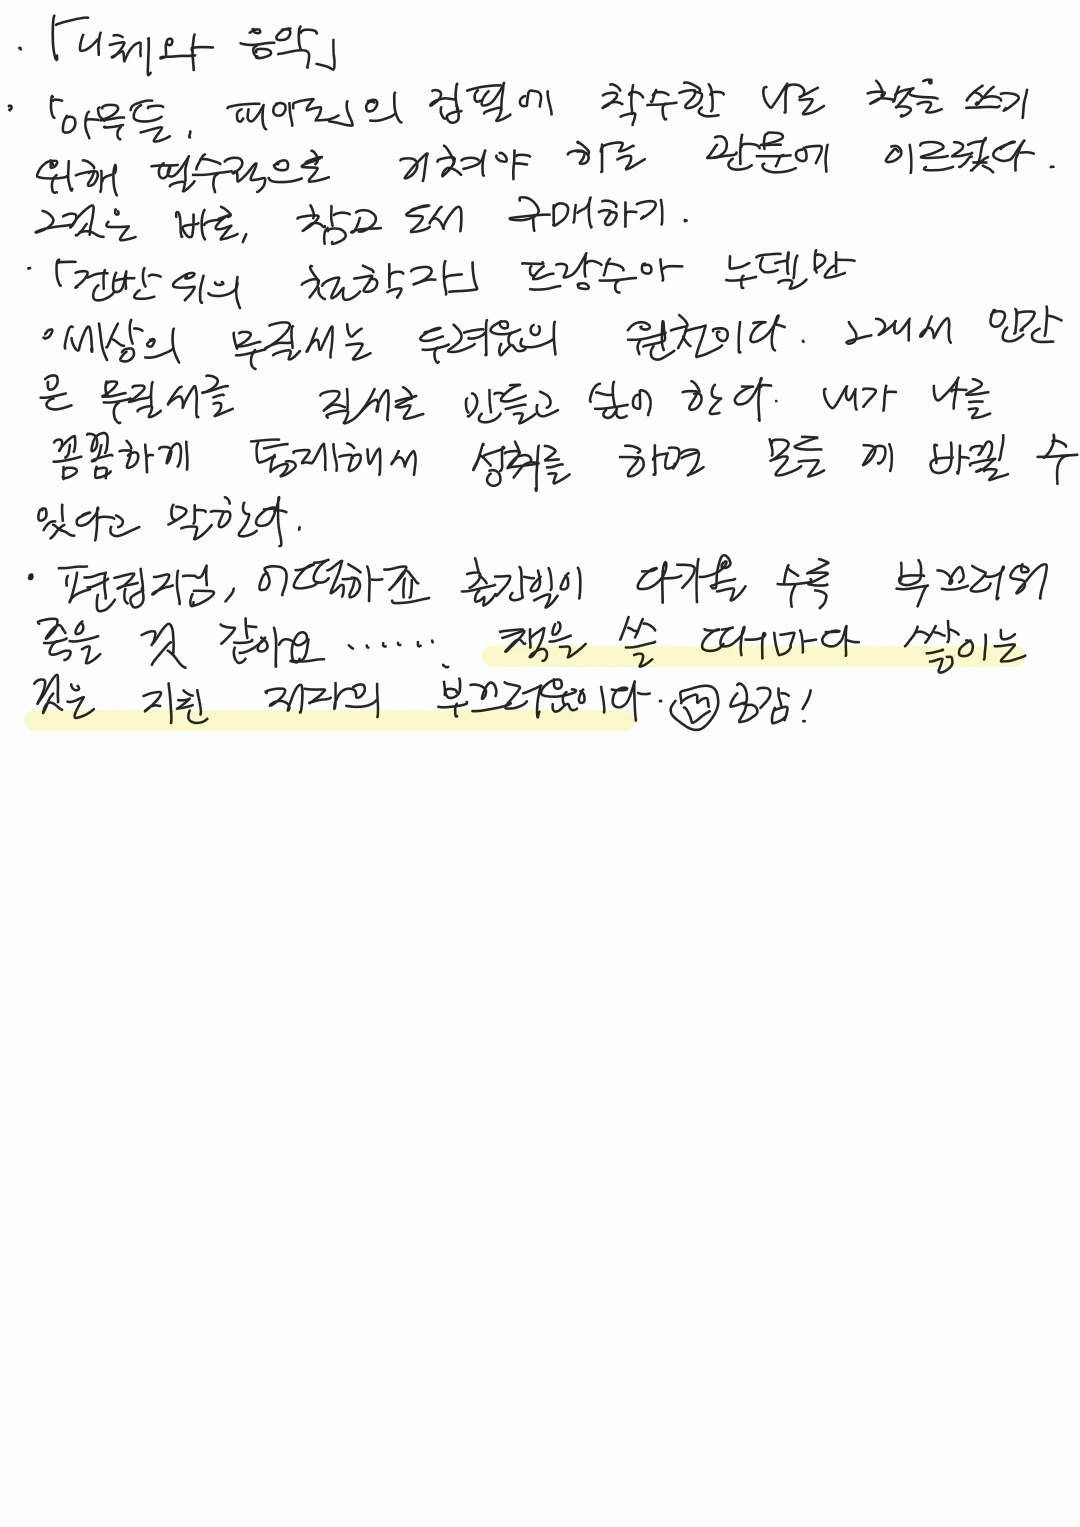 · 「니체와 음악」
· 「아무튼, 피아노」의 집필에 착수한 나는 책을 쓰기
위해 필수적으로 거쳐야 하는 관문에 이르렀다.
그것은 바로, 참고 도서 구매하기.
· 「건반 위의 철학자」 프랑수아 누델만
· 세상의 무질서는 두려움의 원천이다. 그래서 인간
은 무질서를 질서로 만들고 싶어 한다. 내가 나를
꼼꼼하게 통제해서 성취를 하면 모든 게 바뀔 수
있다고 말한다.
· 편집자님, 어떡하죠 출간일이 다가올 수록 부끄러워
죽을 것 같아요 ....... 책을 쓸 때마다 쌓이는
것은 지난 저자의 부끄러움이다. 공감!